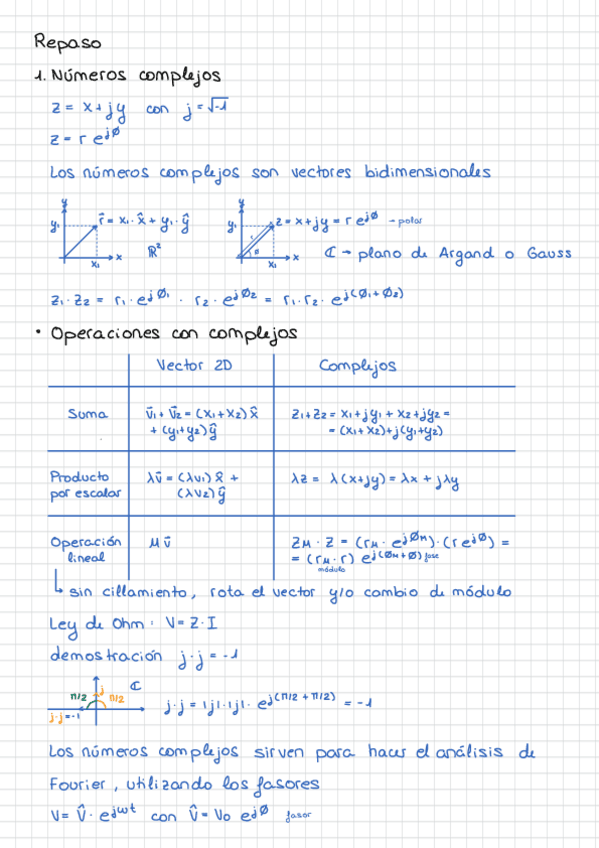 Repaso
1. Números complejos
z = x + jy con j = √-1
z = r e^jØ
Los números complejos son vectores bidimensionales
y
y₁
r⃗ = x₁·x̂ + y₁·ŷ
ℝ²
x₁
x
y
y₁
z = x + jy = r e^jØ - polar
r
Ø
x₁
x
ℂ → plano de Argand o Gauss
z₁·z₂ = r₁·e^jØ₁ · r₂·e^jØ₂ = r₁·r₂·e^j(Ø₁+Ø₂)
• Operaciones con complejos
Vector 2D Complejos
Suma v⃗₁ + v⃗₂ = (x₁+x₂) x̂ z₁+z₂ = x₁+jy₁ + x₂+jy₂ =
+ (y₁+y₂) ŷ = (x₁+x₂)+j(y₁+y₂)
Producto λv⃗ = (λv₁) x̂ + λz = λ(x+jy) = λx + jλy
por escalar (λv₂) ŷ
Operación Mv⃗ z_M · z = (r_M · e^jØ_M)·(r e^jØ) =
lineal = (r_M·r) e^j(Ø_M+Ø) fase
módulo
↳ sin cillamiento, rota el vector y/o cambio de módulo
Ley de Ohm: V = Z·I
demostración j·j = -1
ℂ
π/2
j
π/2
j·j=-1
j·j = |j|·|j|· e^j(π/2 + π/2) = -1
Los números complejos sirven para hacer el análisis de
Fourier, utilizando los fasores
V = V̂ · e^jωt con V̂ = V₀ e^jØ fasor